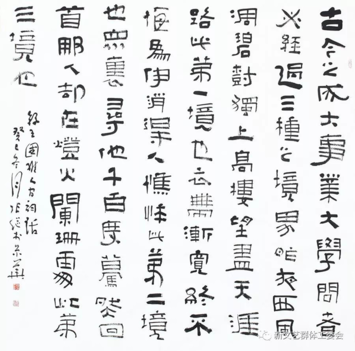 古今之成大事業大學問者
必經過三種之境界昨夜西風
凋碧樹獨上高樓望盡天涯
路此第一境也衣帶漸寬終不
悔為伊消得人憔悴此第二境
也眾裏尋他千百度驀然回
首那人却在燈火闌珊處此第
三境也
王國維人間詞話
冬月
新文艺群体工委会